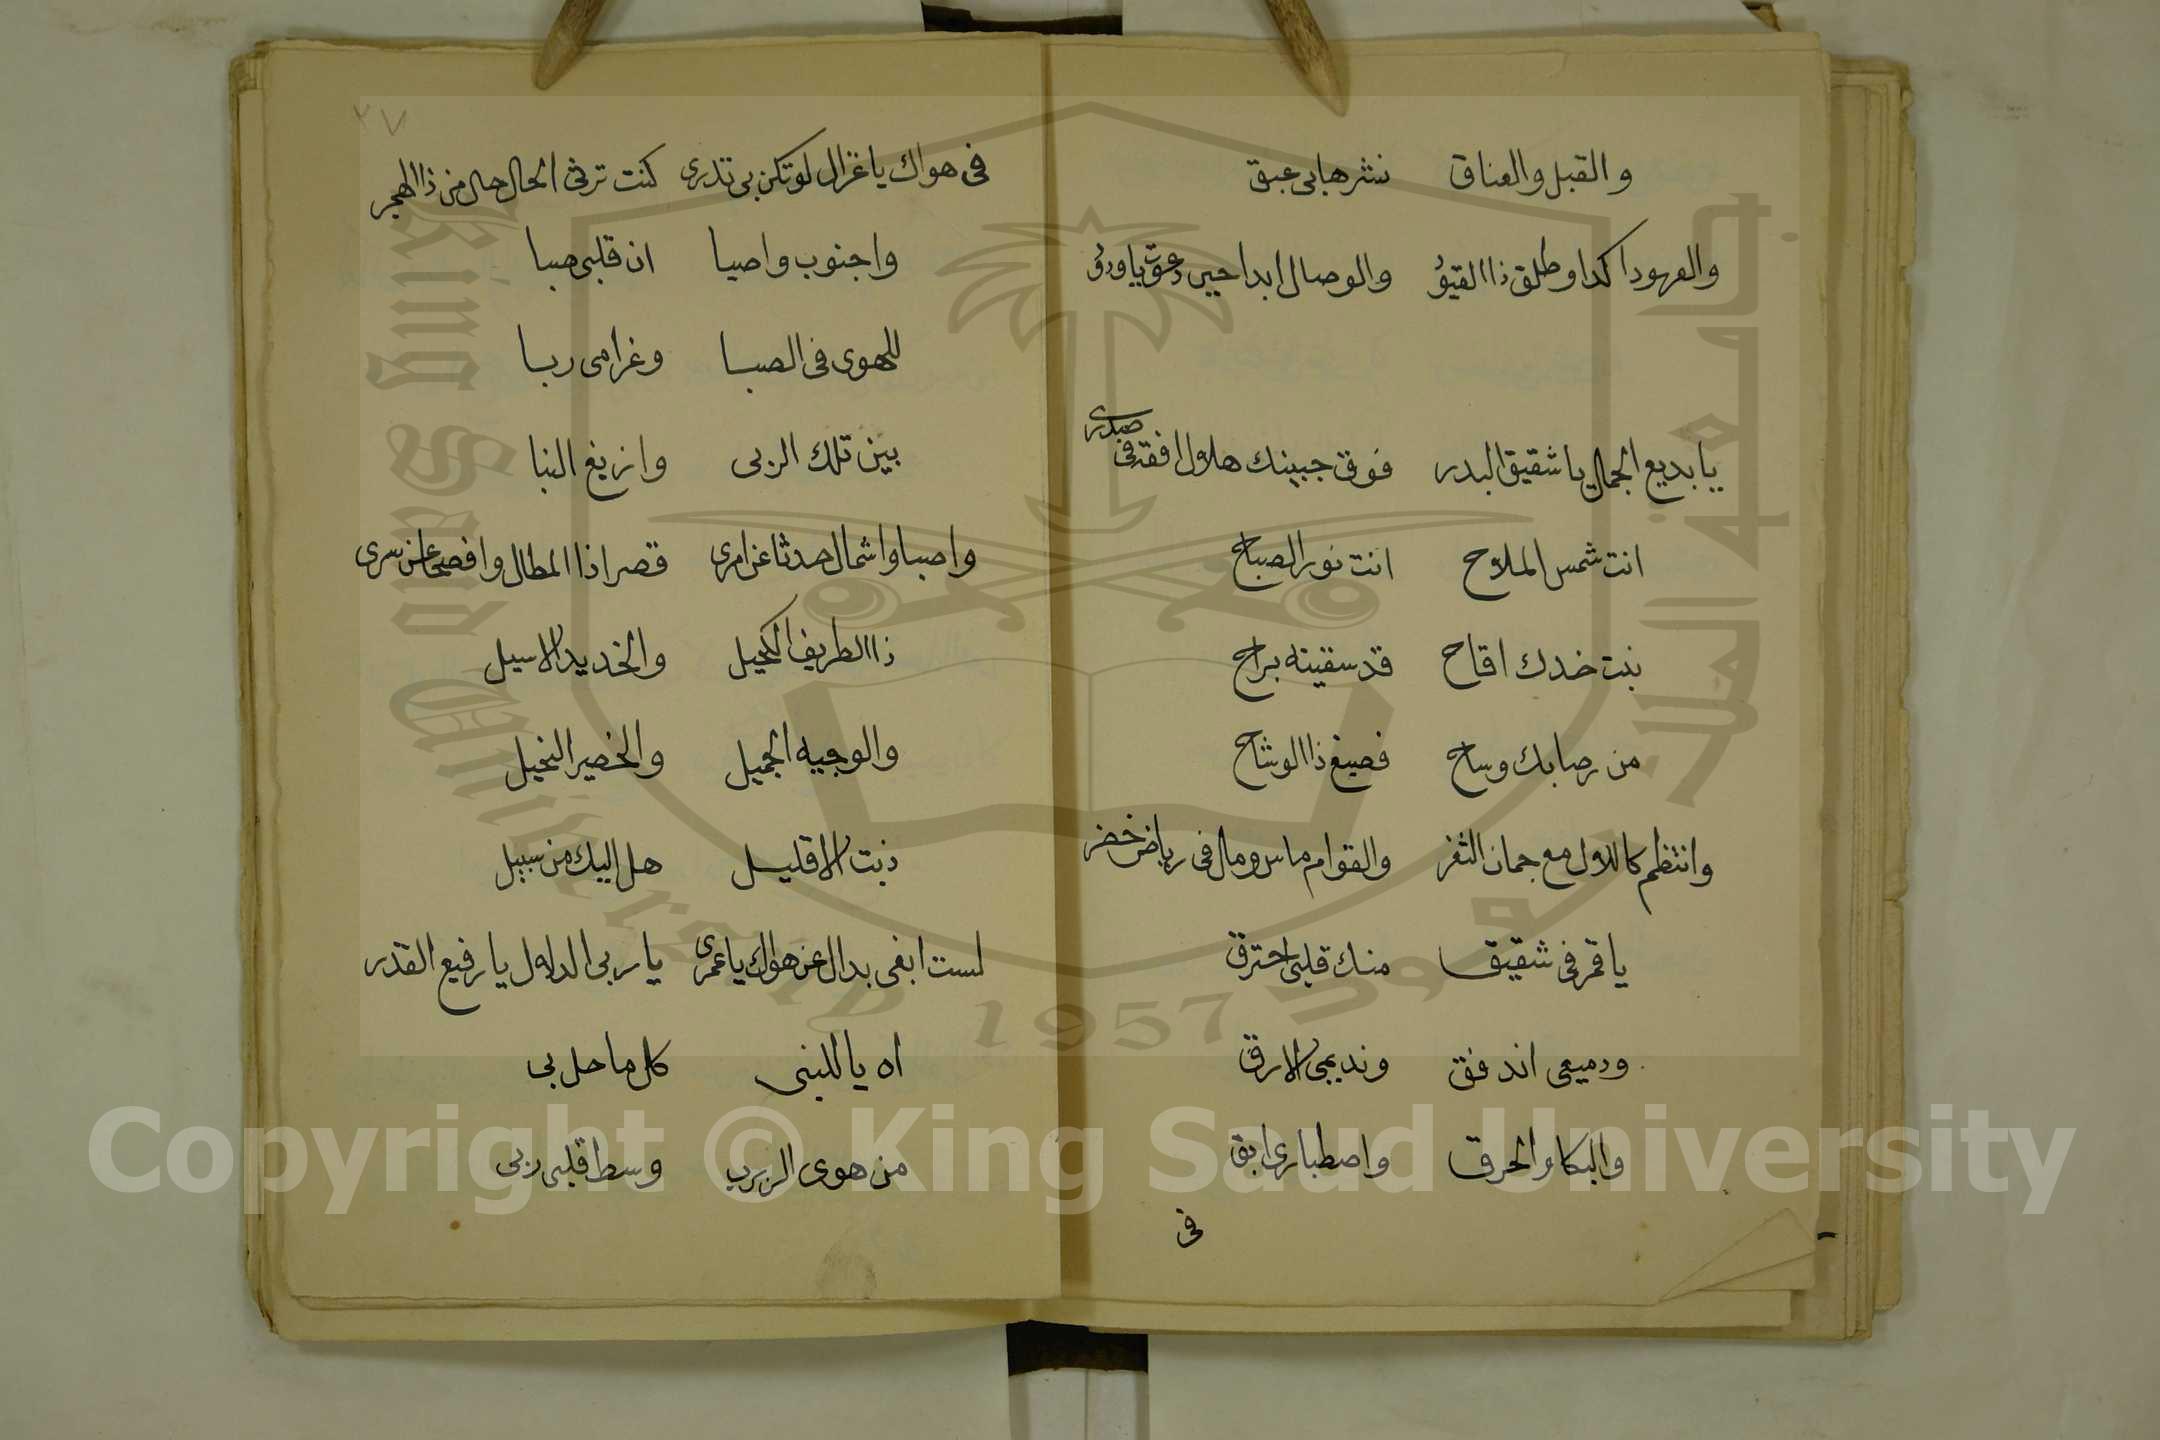 والقبل والعناق نشرها بي عبق
والعهود اكدا وطلق ذا القيود والوصال ابدا حين
يا بديع الجمال يا شقيق البدر فوق جبينك هلال افقه في صدري
انت شمس الملاح انت نور الصباح
نبت خدك اقاح قد سقيته براح
من رضابك وساح فصيغ ذا الوشاح
وانتظم كاللال مع جمان الثغر والقوام ماس ومال في رياض خضر
يا قمر في شقيق منك قلبي احترق
ودميعي اندفق ونديمي الارق
والبكا والحرق واصطباري ابق
في
٢٧
في هواك يا غزال لو تكن بي تدري كنت ترثي الحال حل من ذا الهجر
واجنوب واصبا ان قلبي صبا
للهوى في الصبا وغرامي ربا
بين تلك الربى وازيغ النبا
واصبا واشمال حدثا عن امري قصر اذا المطال وافصحا عن سري
ذا الطريف الكحيل والخديد الاسيل
والوجيه الجميل والخصير النحيل
ذبت الا قليل هل اليك من سبيل
لست ابغي بدال عن هواك يا عمري يا ربي الدلال يا رفيع القدر
اه يا للبني كل ما حل بي
من هوى الربرب وسط قلبي ربي
جامعة الملك سعود
King Saud University
1957
Copyright © King Saud University